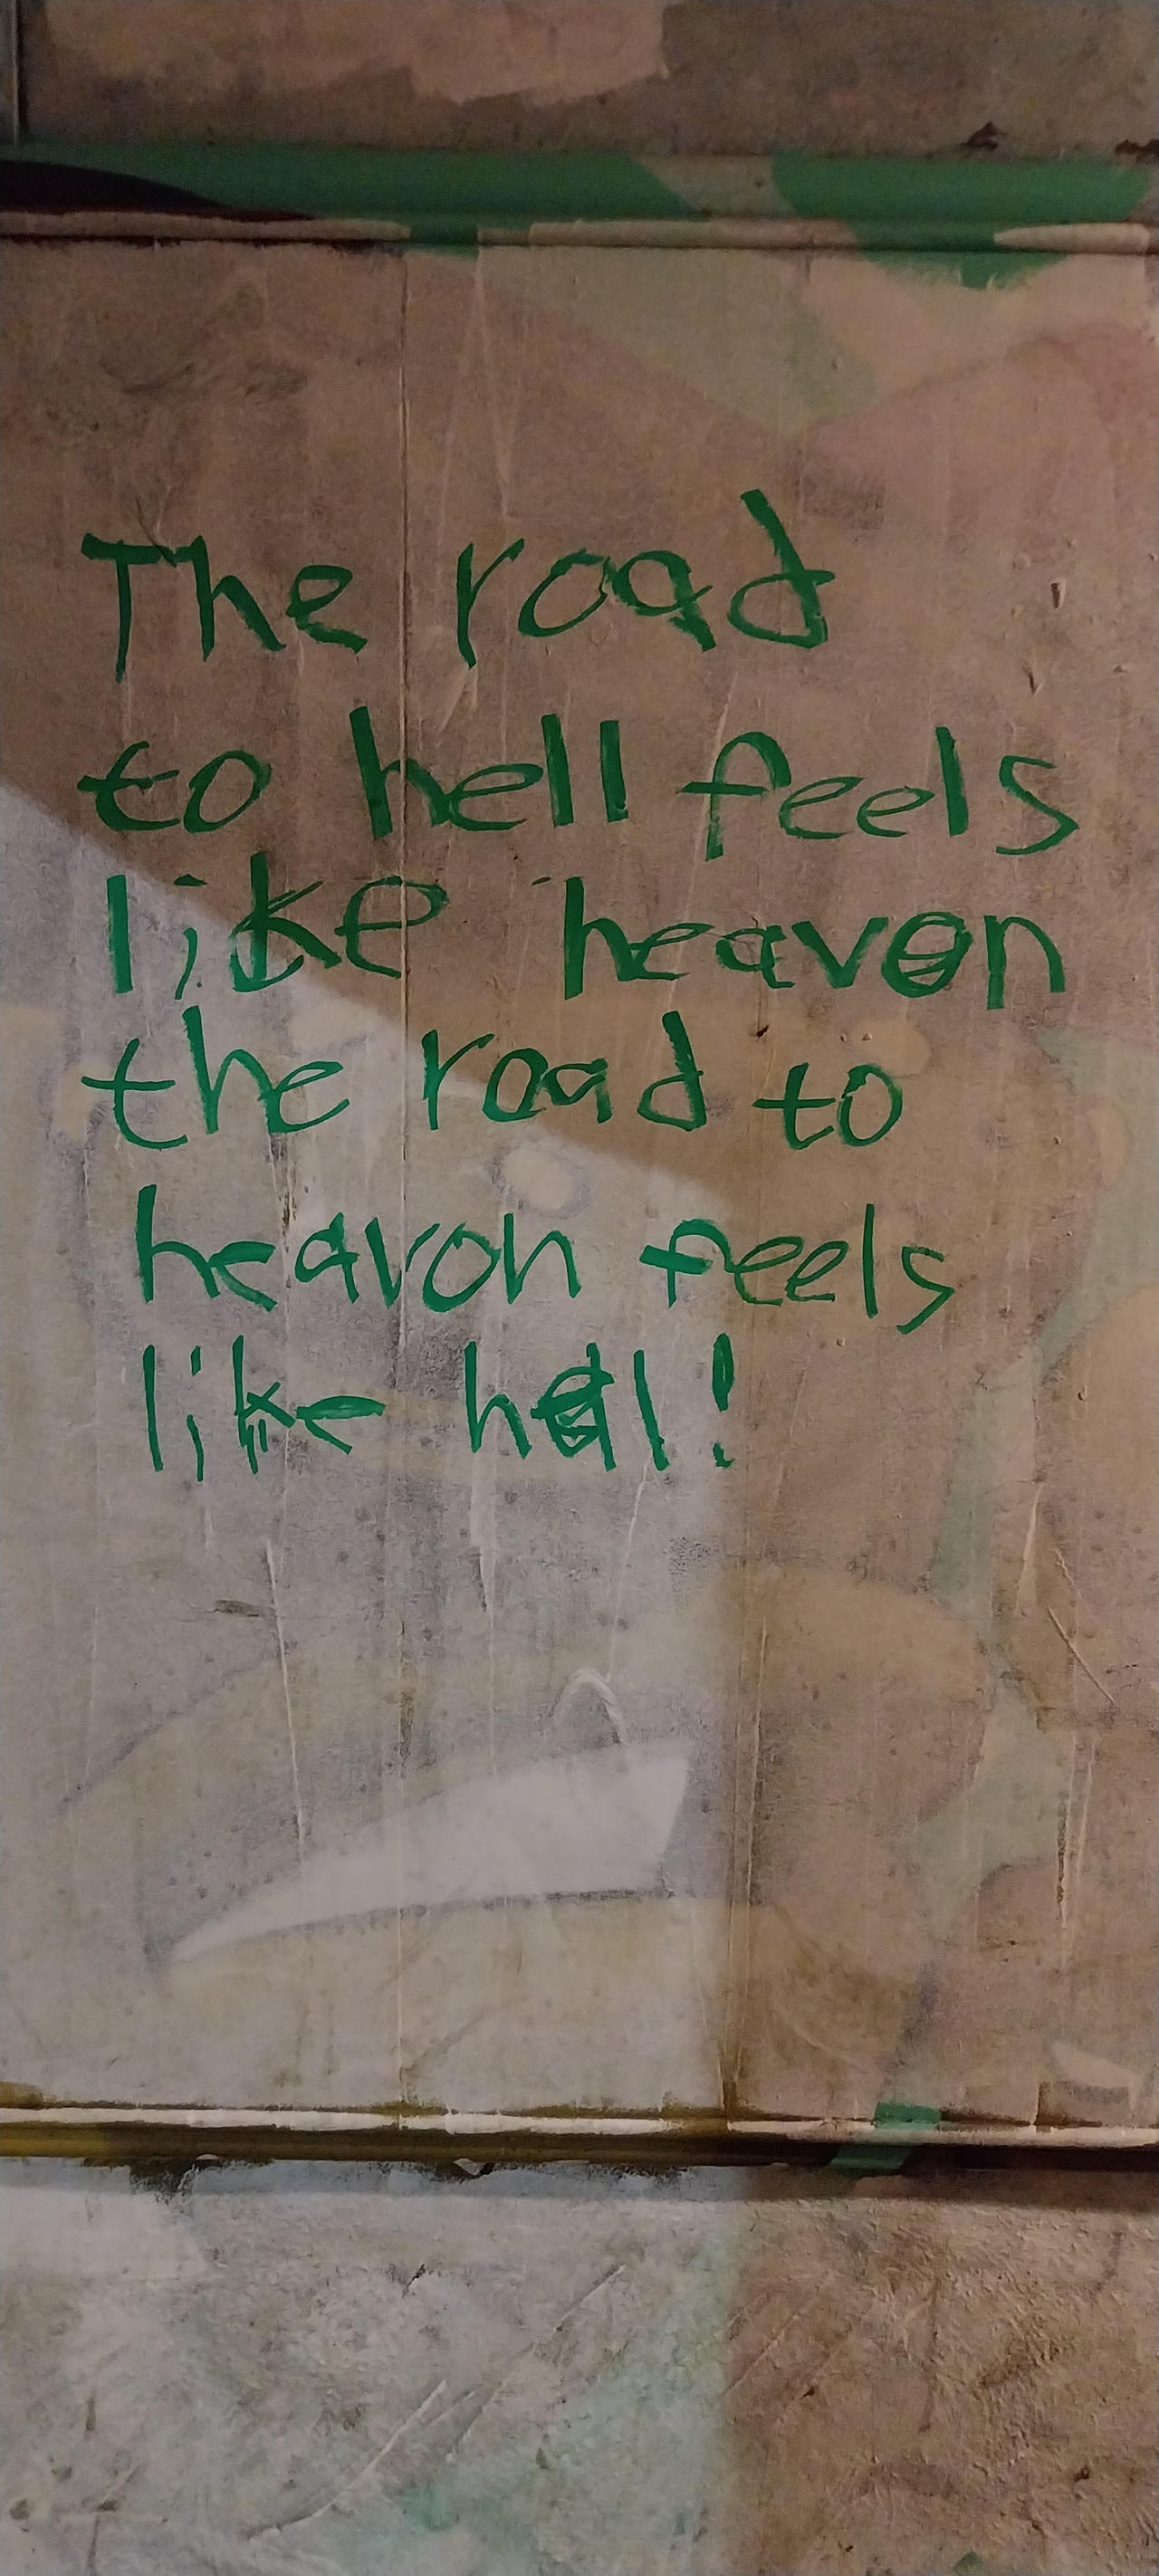 The road
to hell feels
like heaven
the road to
heavon feels
like hell!